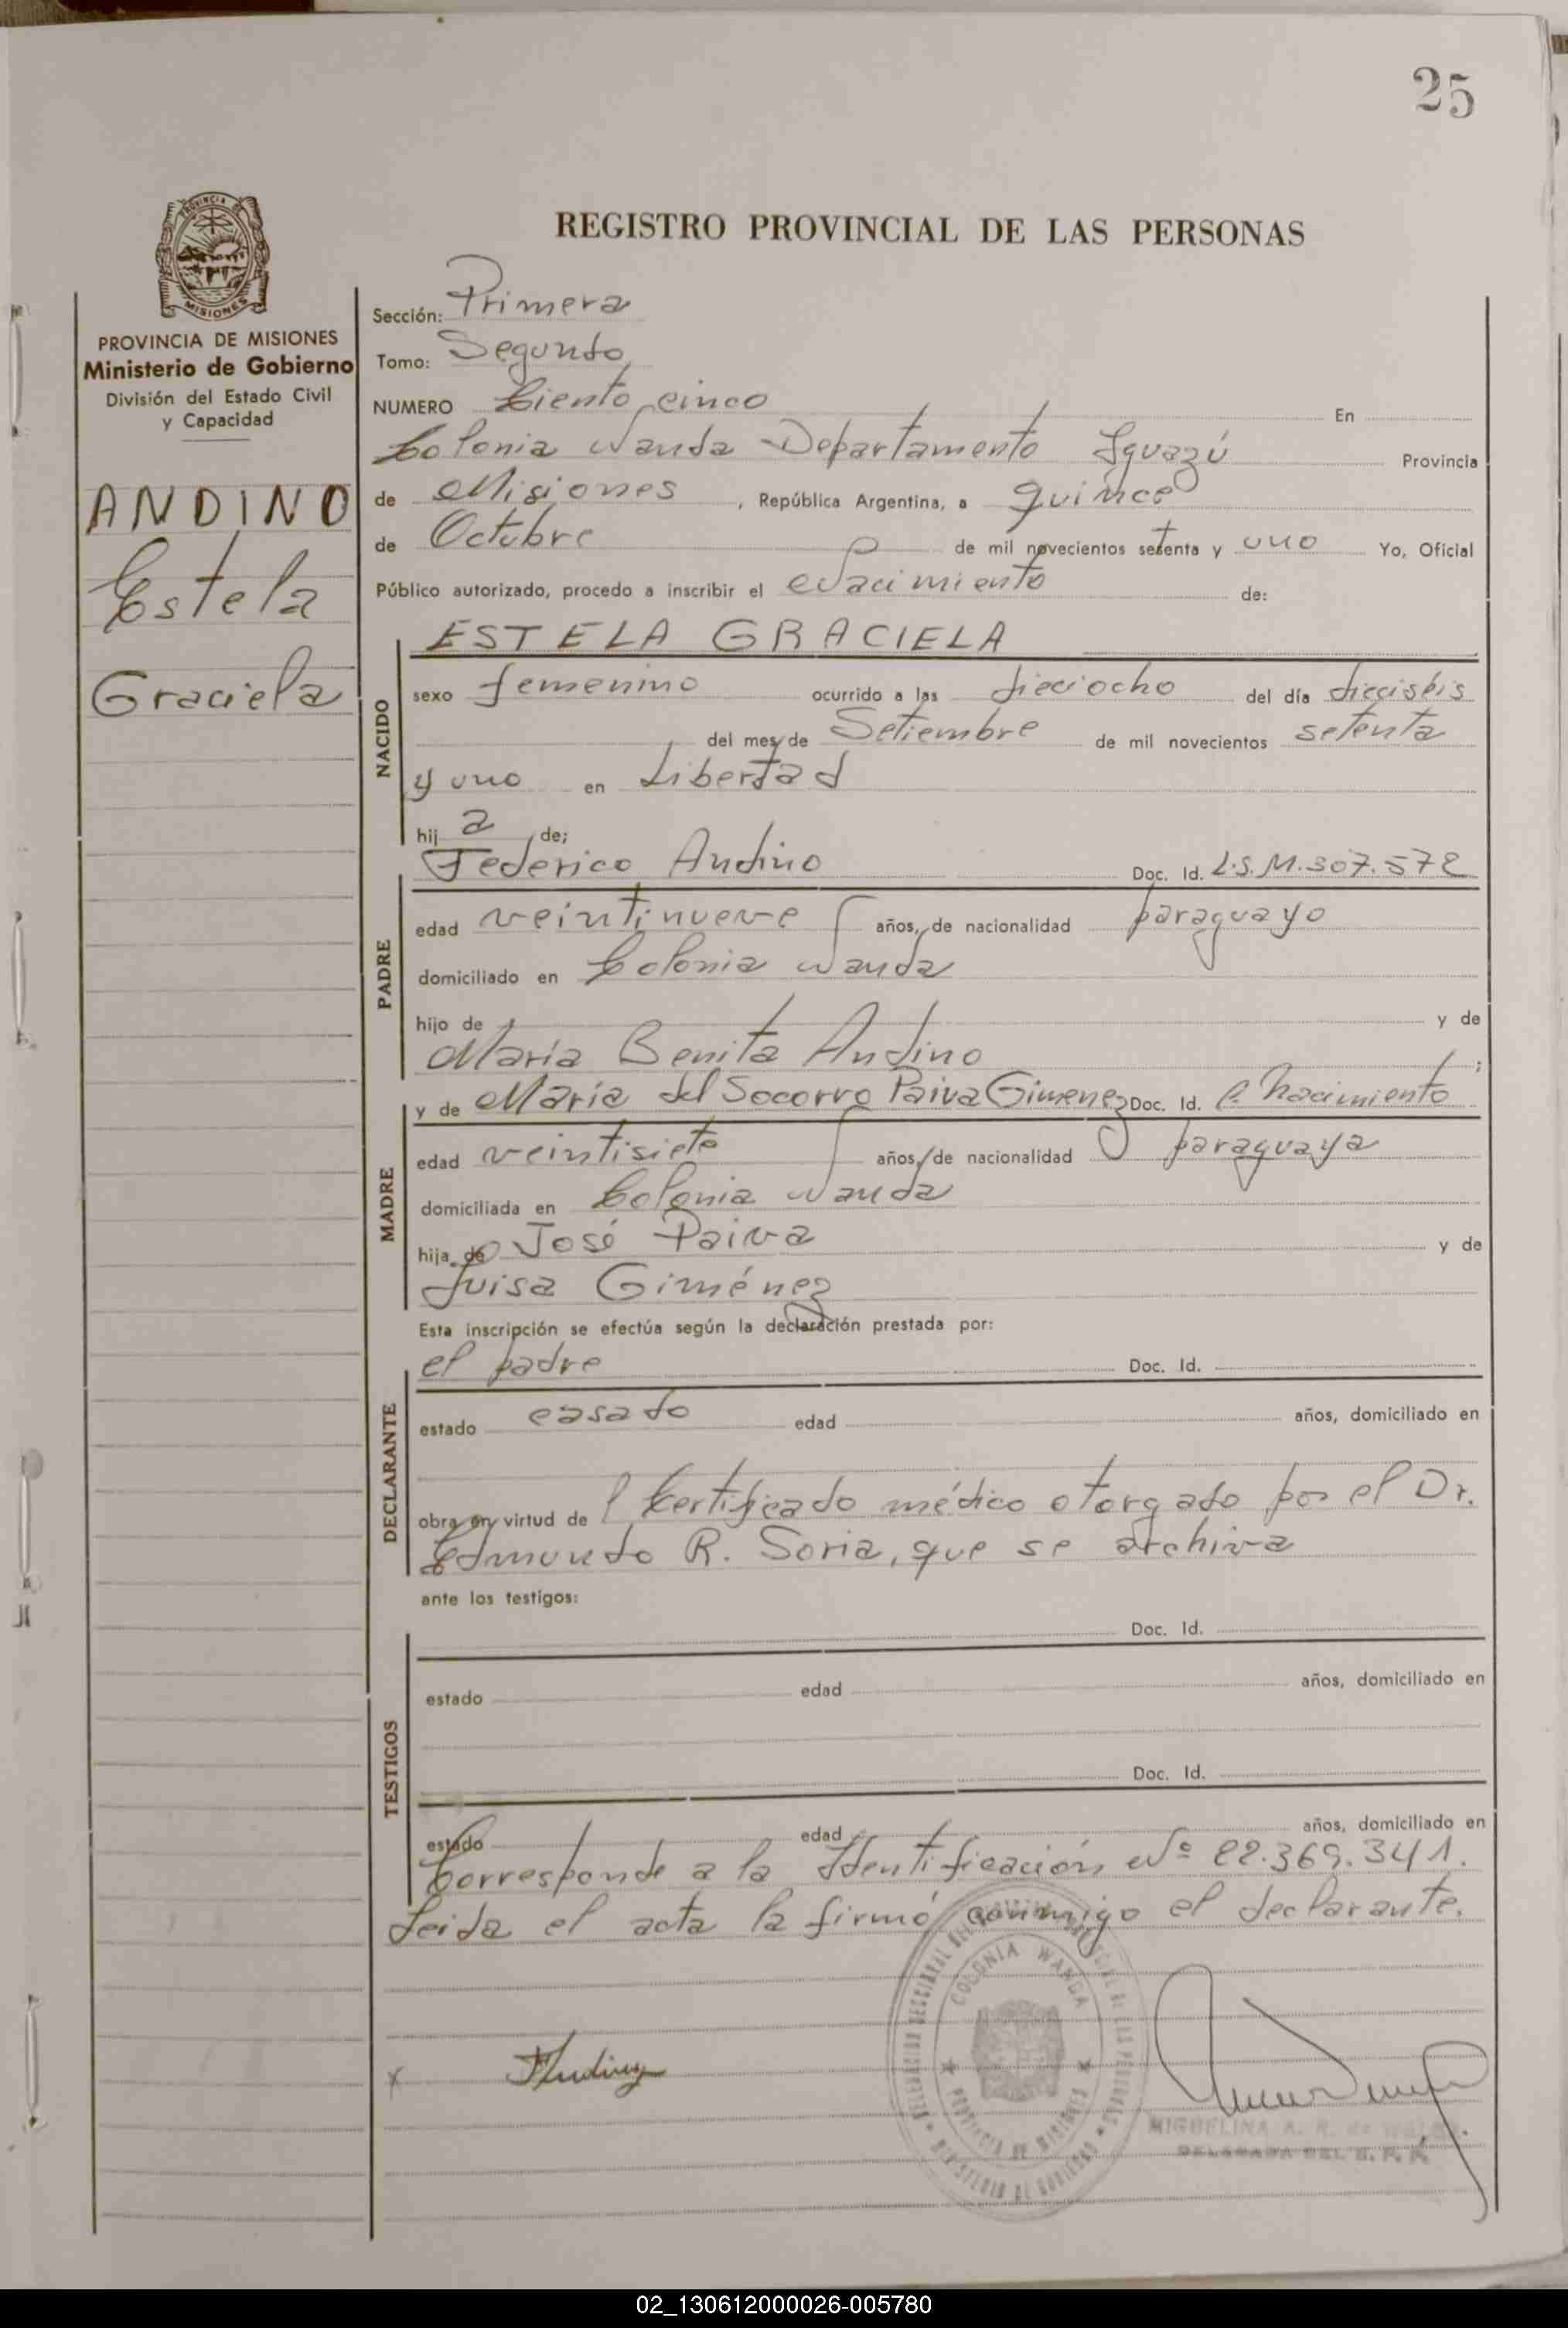 25
REGISTRO PROVINCIAL DE LAS PERSONAS
PROVINCIA DE MISIONES
Ministerio de Gobierno
División del Estado Civil
y Capacidad
ANDINO
Estela
Graciela
Sección: Primera
Tomo: Segundo
NUMERO Ciento cinco En
Colonia Wanda Departamento Iguazú Provincia
de Misiones, República Argentina, a quince
de Octubre de mil novecientos setenta y uno Yo, Oficial
Público autorizado, procedo a inscribir el Nacimiento de:
NACIDO
ESTELA GRACIELA
sexo femenino ocurrido a las dieciocho del día dieciséis
del mes de Setiembre de mil novecientos setenta
y uno en Libertad
hij a de;
PADRE
Federico Andino Doc. Id. L.S.M.307.572
edad veintinueve años, de nacionalidad paraguayo
domiciliado en Colonia Wanda
hijo de y de
María Benita Andino ;
MADRE
y de María del Socorro Paiva Gimenez Doc. Id. C. Nacimiento
edad veintisiete años, de nacionalidad paraguaya
domiciliada en Colonia Wanda
hija de José Paiva y de
Luisa Giménez
Esta inscripción se efectúa según la declaración prestada por:
DECLARANTE
el padre Doc. Id.
estado casado edad años, domiciliado en
obra en virtud de l Certificado médico otorgado por el Dr.
Edmundo R. Soria, que se archiva
ante los testigos:
TESTIGOS
Doc. Id.
estado edad años, domiciliado en
Doc. Id.
estado edad años, domiciliado en
Corresponde a la Identificación Nº 22.369.341.
Leida el acta la firmó conmigo el declarante.
COLONIA WANDA
PROVINCIA DE MISIONES
MINISTERIO DE GOBIERNO
x
MIGUELINA A. R. de
DELEGADA DEL R. P. P.
02_130612000026-005780